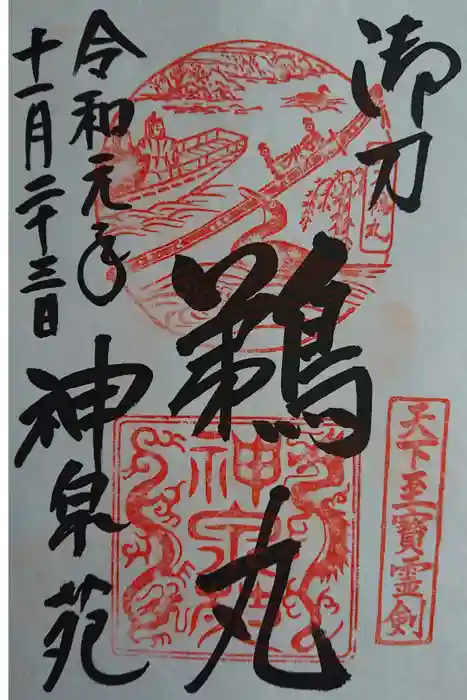 御刀
鵜丸
天下至寶霊剣
鵜丸
神泉苑
令和元年
十一月二十三日
神泉苑